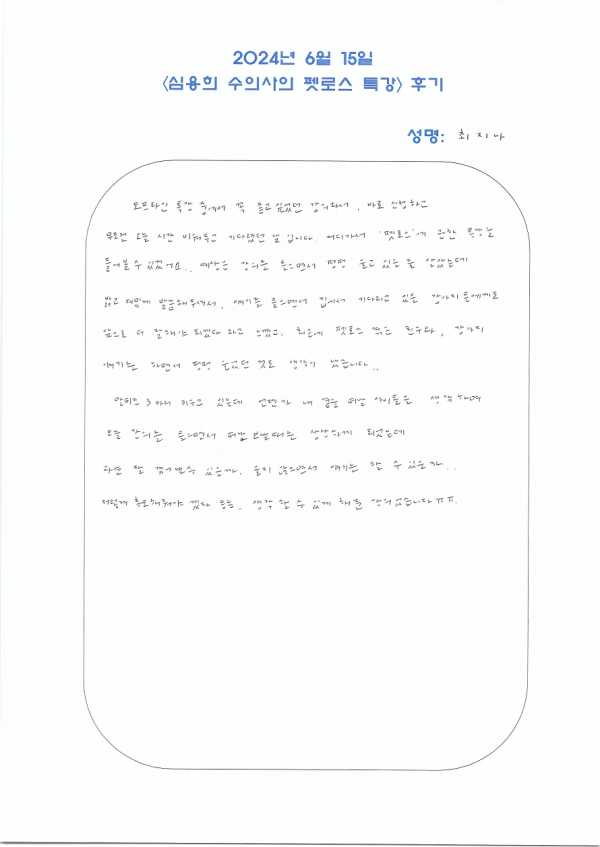 2024년 6월 15일
<심용희 수의사의 펫로스 특강> 후기
성명: 최지나
오프라인 특강 중에서 꼭 듣고싶었던 강의라서, 바로 신청하고
무조건 오늘 시간 비워두고 기다렸던 날 입니다. 어디가서 '펫로스'에 관한 특강을
들어볼 수 있겠어요.. 예상은 강의를 들으면서 펑펑 울고 있을 줄 알았는데
밝고 재밌게 말씀해주셔서, 얘기를 들으면서 집에서 기다리고 있을 강아지들에게도
앞으로 더 잘해야 되겠다 라고 느꼈고, 최근에 펫로스 겪은 친구와, 강아지
얘기를 하면서 펑펑 울었던 것도 생각이 났습니다..
말티즈 3마리 키우고 있는데 언젠가 내 곁을 떠날 아이들을 생각하며
오늘 강의를 들으면서 떠나보낼때를 상상하게 되었는데
과연 잘 견뎌낼수 있을까. 울지 않으면서 얘기를 할 수 있을까..
저렇게 후보해줘야 겠다 등등, 생각 할 수 있게 해준 강의였습니다ㅠㅠ.